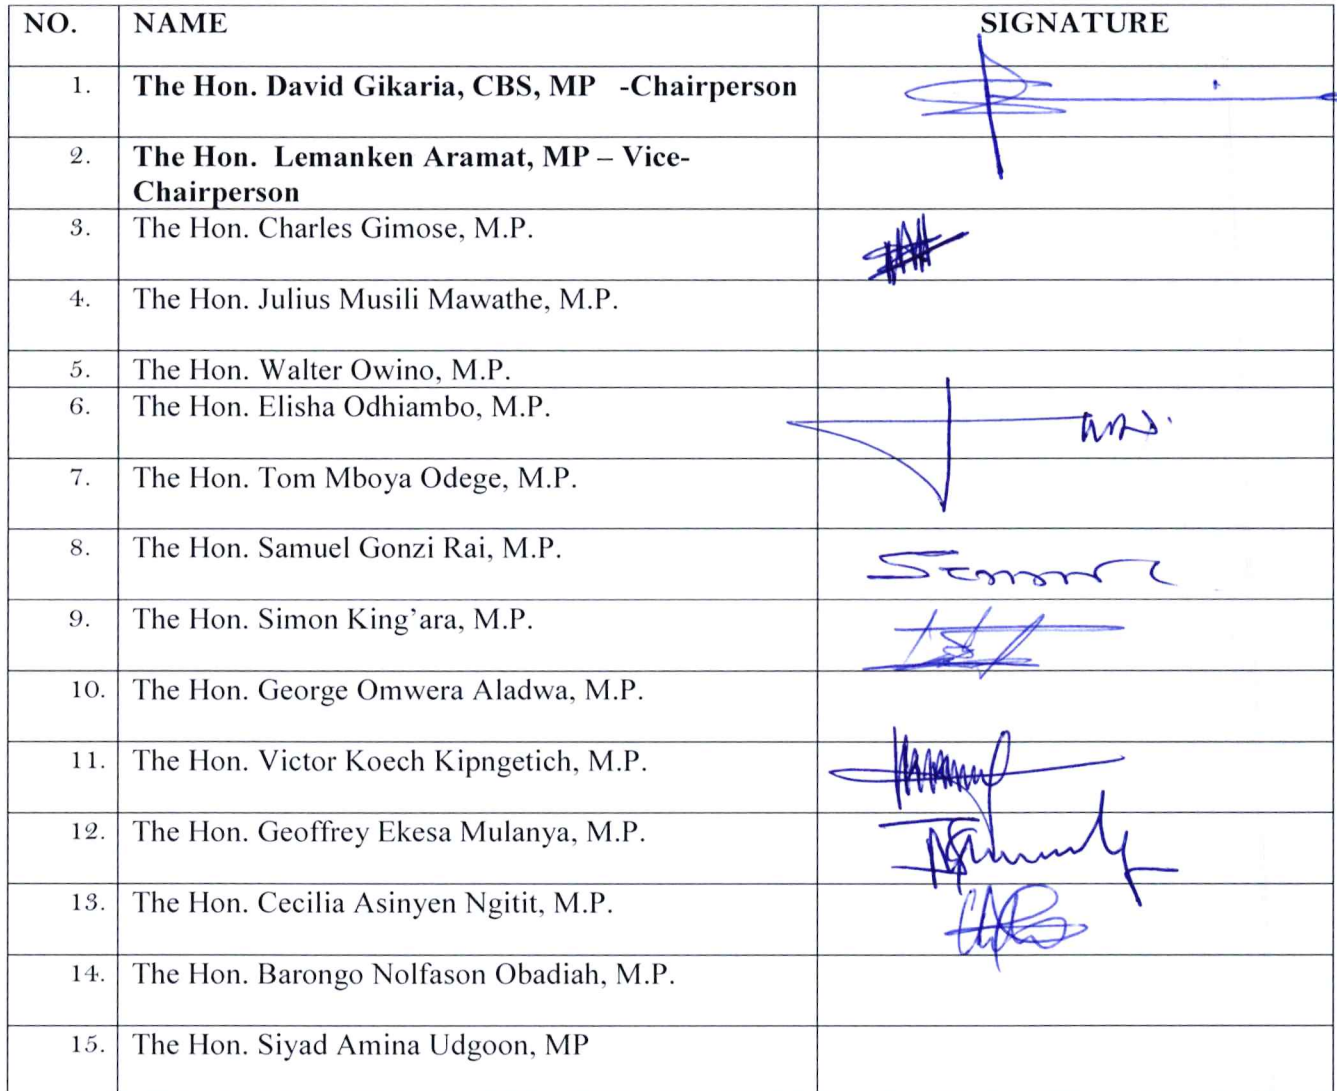 NO. NAME SIGNATURE
1. The Hon. David Gikaria, CBS, MP -Chairperson
2. The Hon. Lemanken Aramat, MP – Vice-
Chairperson
3. The Hon. Charles Gimose, M.P.
4. The Hon. Julius Musili Mawathe, M.P.
5. The Hon. Walter Owino, M.P.
6. The Hon. Elisha Odhiambo, M.P.
7. The Hon. Tom Mboya Odege, M.P.
8. The Hon. Samuel Gonzi Rai, M.P.
9. The Hon. Simon King’ara, M.P.
10. The Hon. George Omwera Aladwa, M.P.
11. The Hon. Victor Koech Kipngetich, M.P.
12. The Hon. Geoffrey Ekesa Mulanya, M.P.
13. The Hon. Cecilia Asinyen Ngitit, M.P.
14. The Hon. Barongo Nolfason Obadiah, M.P.
15. The Hon. Siyad Amina Udgoon, MP